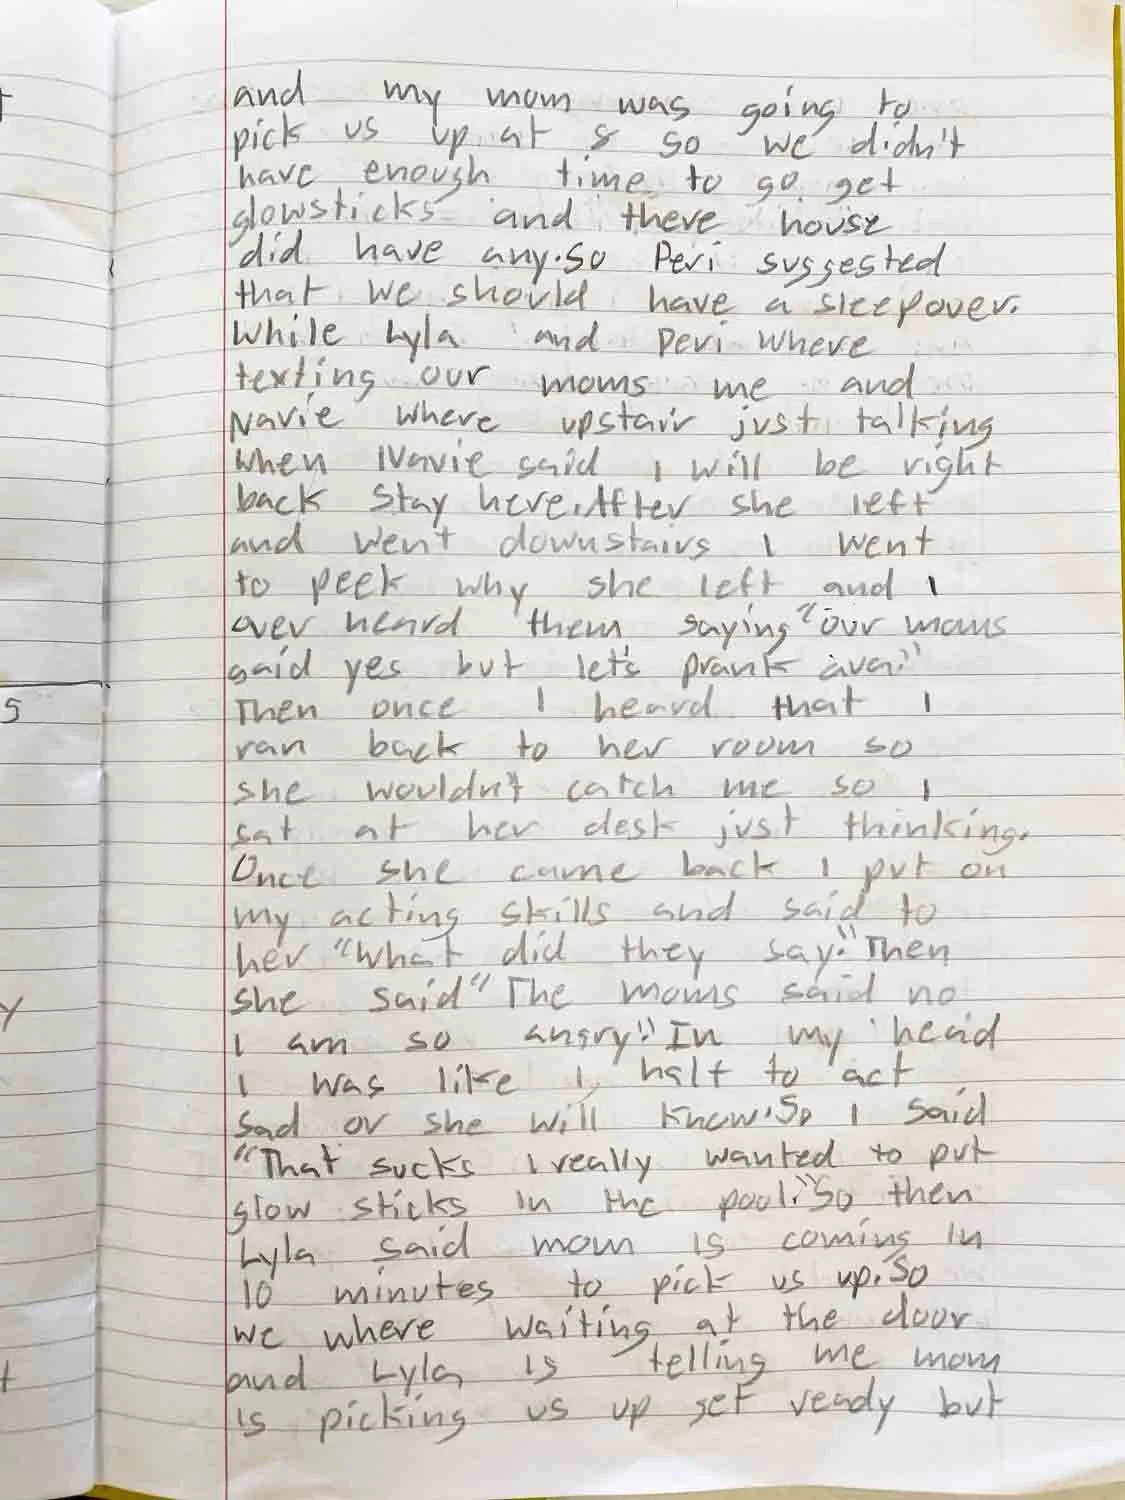 and my mom was going to
pick us up at 8 so we didn't
have enough time to go get
glowsticks and there house
did have any. So Peri suggested
that we should have a sleepover.
While Lyla and Peri where
texting our moms me and
Navie where upstair just talking
when Navie said I will be right
back stay here. After she left
and went downstairs I went
to peek why she left and I
over heard them saying "our moms
said yes but let's prank ava."
Then once I heard that I
ran back to her room so
she wouldn't catch me so I
sat at her desk just thinking.
Once she came back I put on
my acting skills and said to
her "what did they say." Then
she said "The moms said no
I am so angry" In my head
I was like I half to act
sad or she will know. So I said
"That sucks I really wanted to put
glow sticks in the pool." So then
Lyla said mom is coming in
10 minutes to pick us up. So
we where waiting at the door
and Lyla is telling me mom
is picking us up get ready but